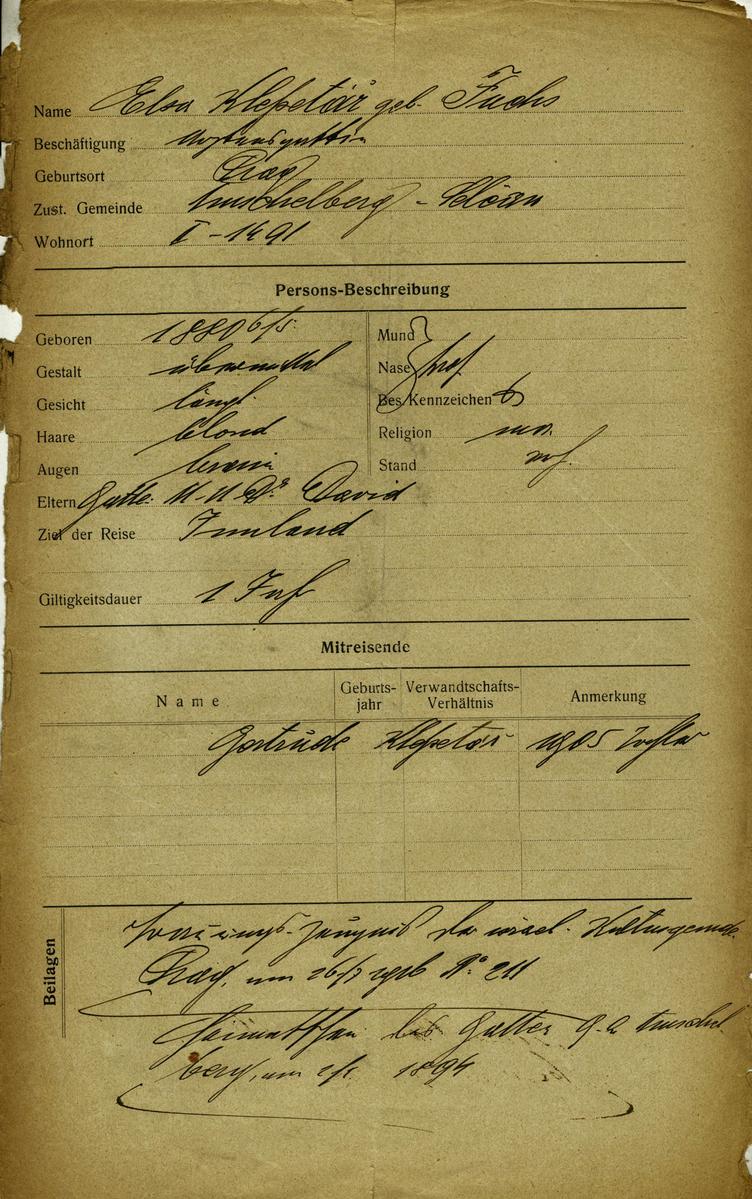 Name Elsa Klepetář geb. Fuchs
Beschäftigung Arztensgattin
Geburtsort Prag
Zust. Gemeinde Muschelberg -
Wohnort I - 1491
Persons-Beschreibung
Geboren 1880 6/5.
Gestalt übermittel
Gesicht längl.
Haare blond
Augen braun
Mund
Nase prop.
Bes. Kennzeichen
Religion mos.
Stand verh.
Eltern Gatte: M. U. Dr. David
Ziel der Reise Innland
Giltigkeitsdauer 1 Jahr
Mitreisende
Name Geburts-jahr Verwandtschafts-Verhältnis Anmerkung
Gertrude Klepetář 1905 Tochter
Beilagen
Trauungs-Zeugnis der israel. Kultusgemeinde
Prag, vom 26/ No 211
Heimatschein des Gatten G. A. Muschel
berg, vom 1894